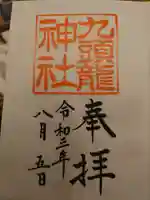 九頭龍
神社
奉拝
令和三年
八月五日